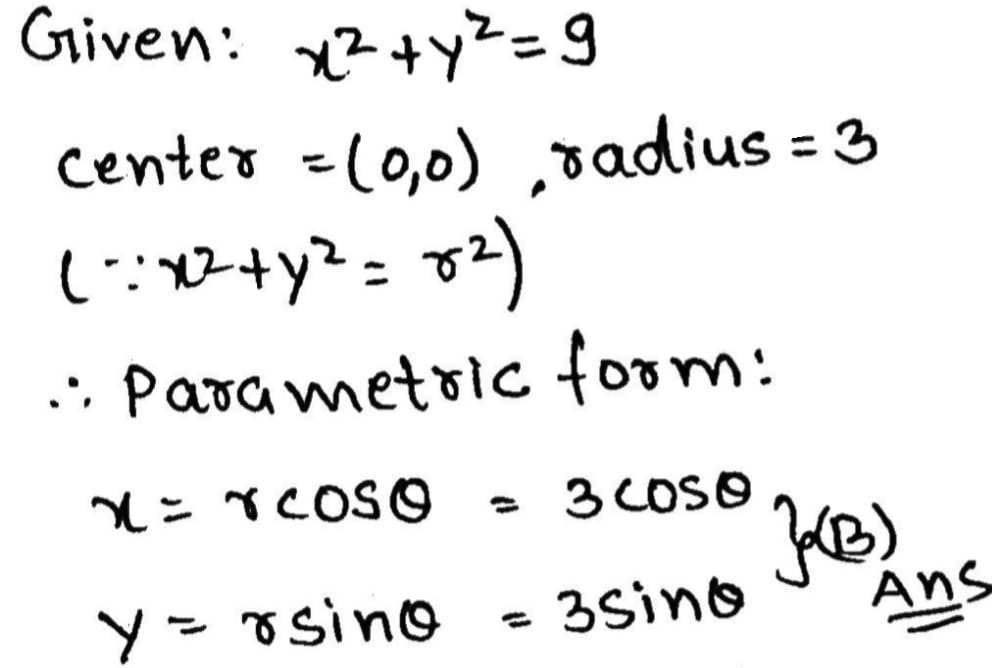 Given: x²+y²=9
center =(0,0) , radius = 3
(∵ x²+y² = r²)
∴ Parametric form:
x = rcosθ = 3cosθ
}(B) Ans
y = rsinθ = 3sinθ